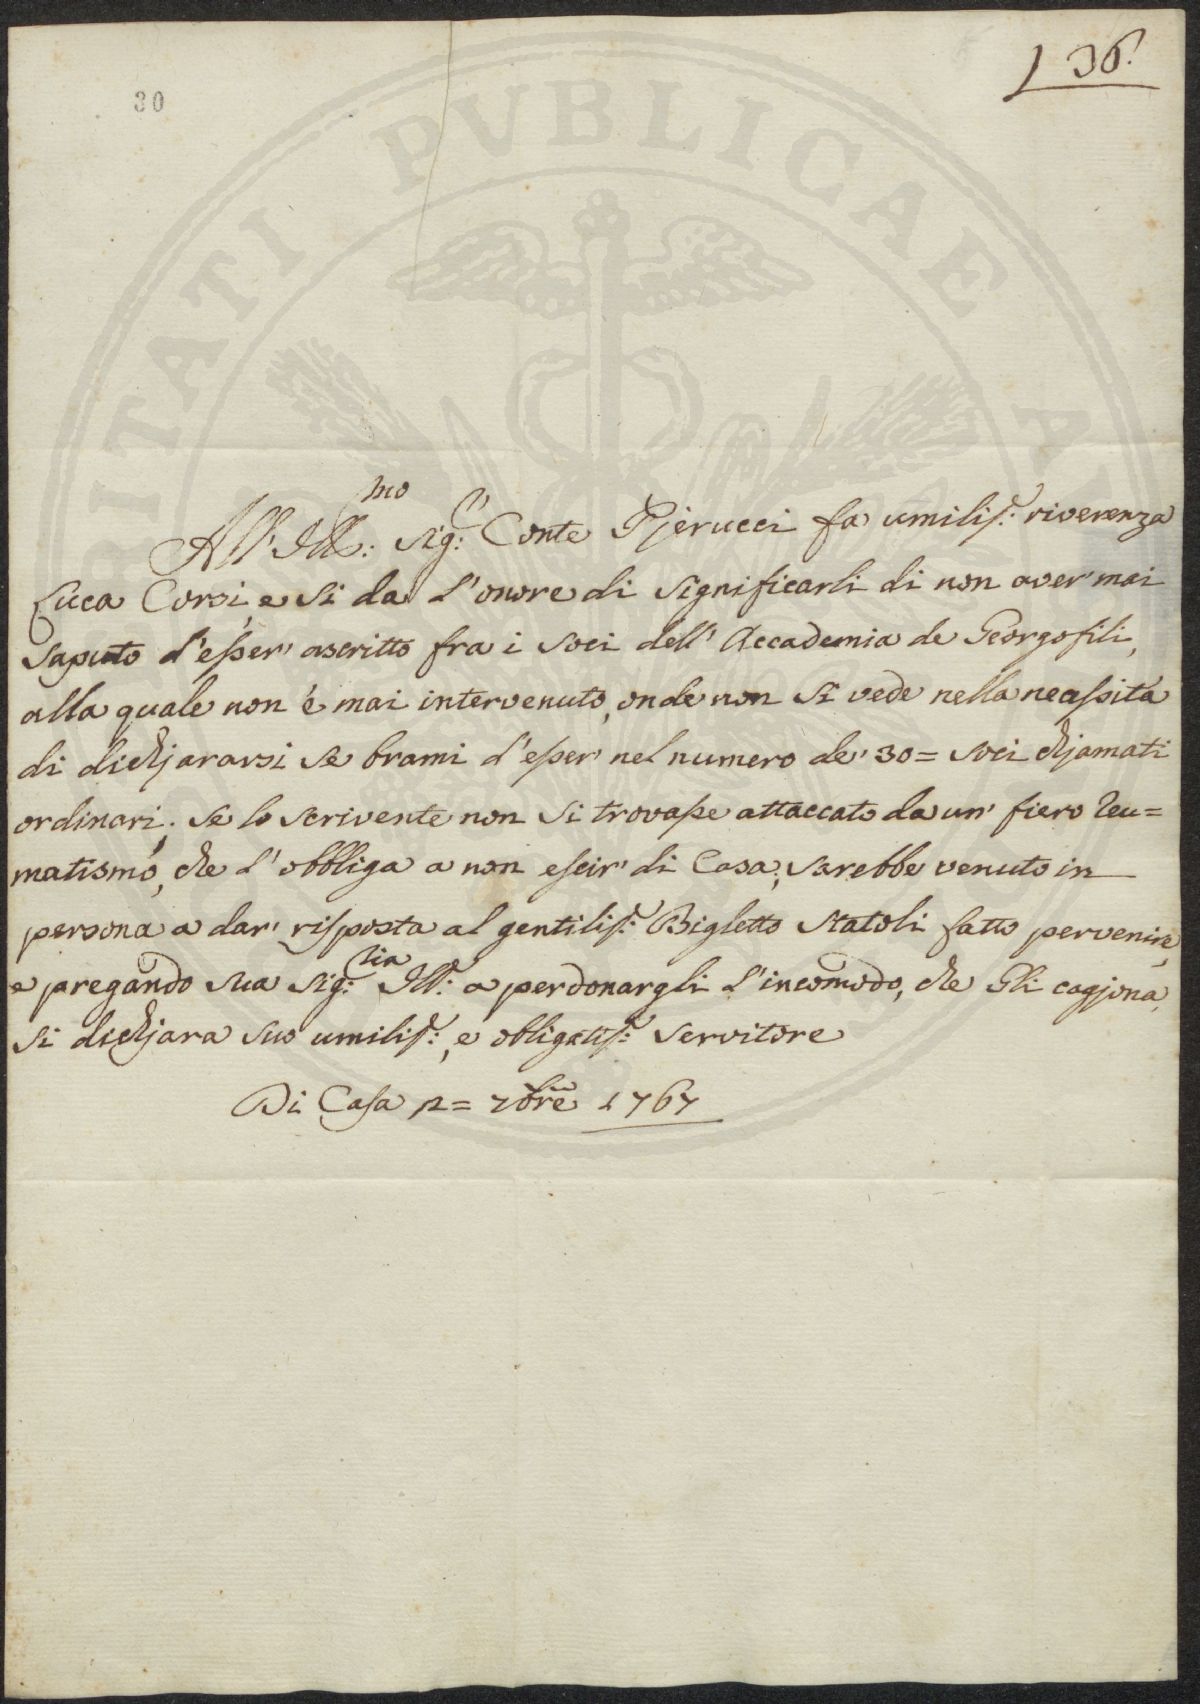 30
136.
PUBLICAE
All' Ill:mo Sig:r Conte Pjerucci fa umiliss:a riverenza
Luca Corsi, e si da l'onore di significarli di non aver' mai
saputo d'esser' ascritto fra i soci dell' Accademia de Georgofili,
alla quale non é mai intervenuto, onde non si vede nella necessitá
di dichjararsi se brami d'esser' nel numero de' 30= soci chjamati
ordinari; se lo scrivente non si trovasse attaccato da un' fiero reu=
matismo, che l'obbliga a non escir' di Casa, sarebbe venuto in
persona a dar' risposta al gentiliss:o Biglietto statoli fatto pervenire,
e pregando sua Sig:ria Ill:a a perdonargli l'incomodo, che Gli cagjona,
si dichjara suo umiliss:o, e obligatiss:o servitore
Di Casa 12= 7bre 1767